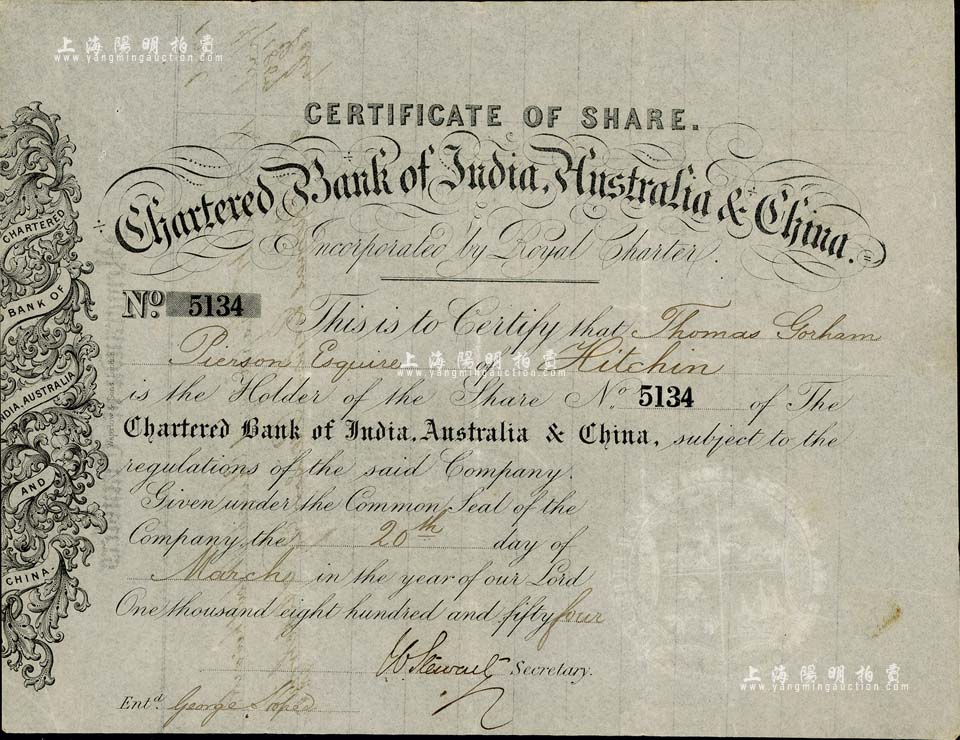 上海陽明拍賣
www.yangmingauction.com
上海陽明拍賣
www.yangmingauction.com
CERTIFICATE OF SHARE.
Chartered Bank of India, Australia & China.
Incorporated by Royal Charter.
CHARTERED
BANK OF
INDIA, AUSTRALIA
AND
CHINA.
No. 5134 This is to Certify that Thomas Gorham
Pierson Esquire of Hitchin
上海陽明拍賣
www.yangmingauction.com
is the Holder of the Share No. 5134 of The
Chartered Bank of India, Australia & China, subject to the
regulations of the said Company.
Given under the Common Seal of the
Company, the 20th day of
March in the year of our Lord
One thousand eight hundred and fifty four
W Stewart Secretary.
Entd. George
上海陽明拍賣
www.yangmingauction.com